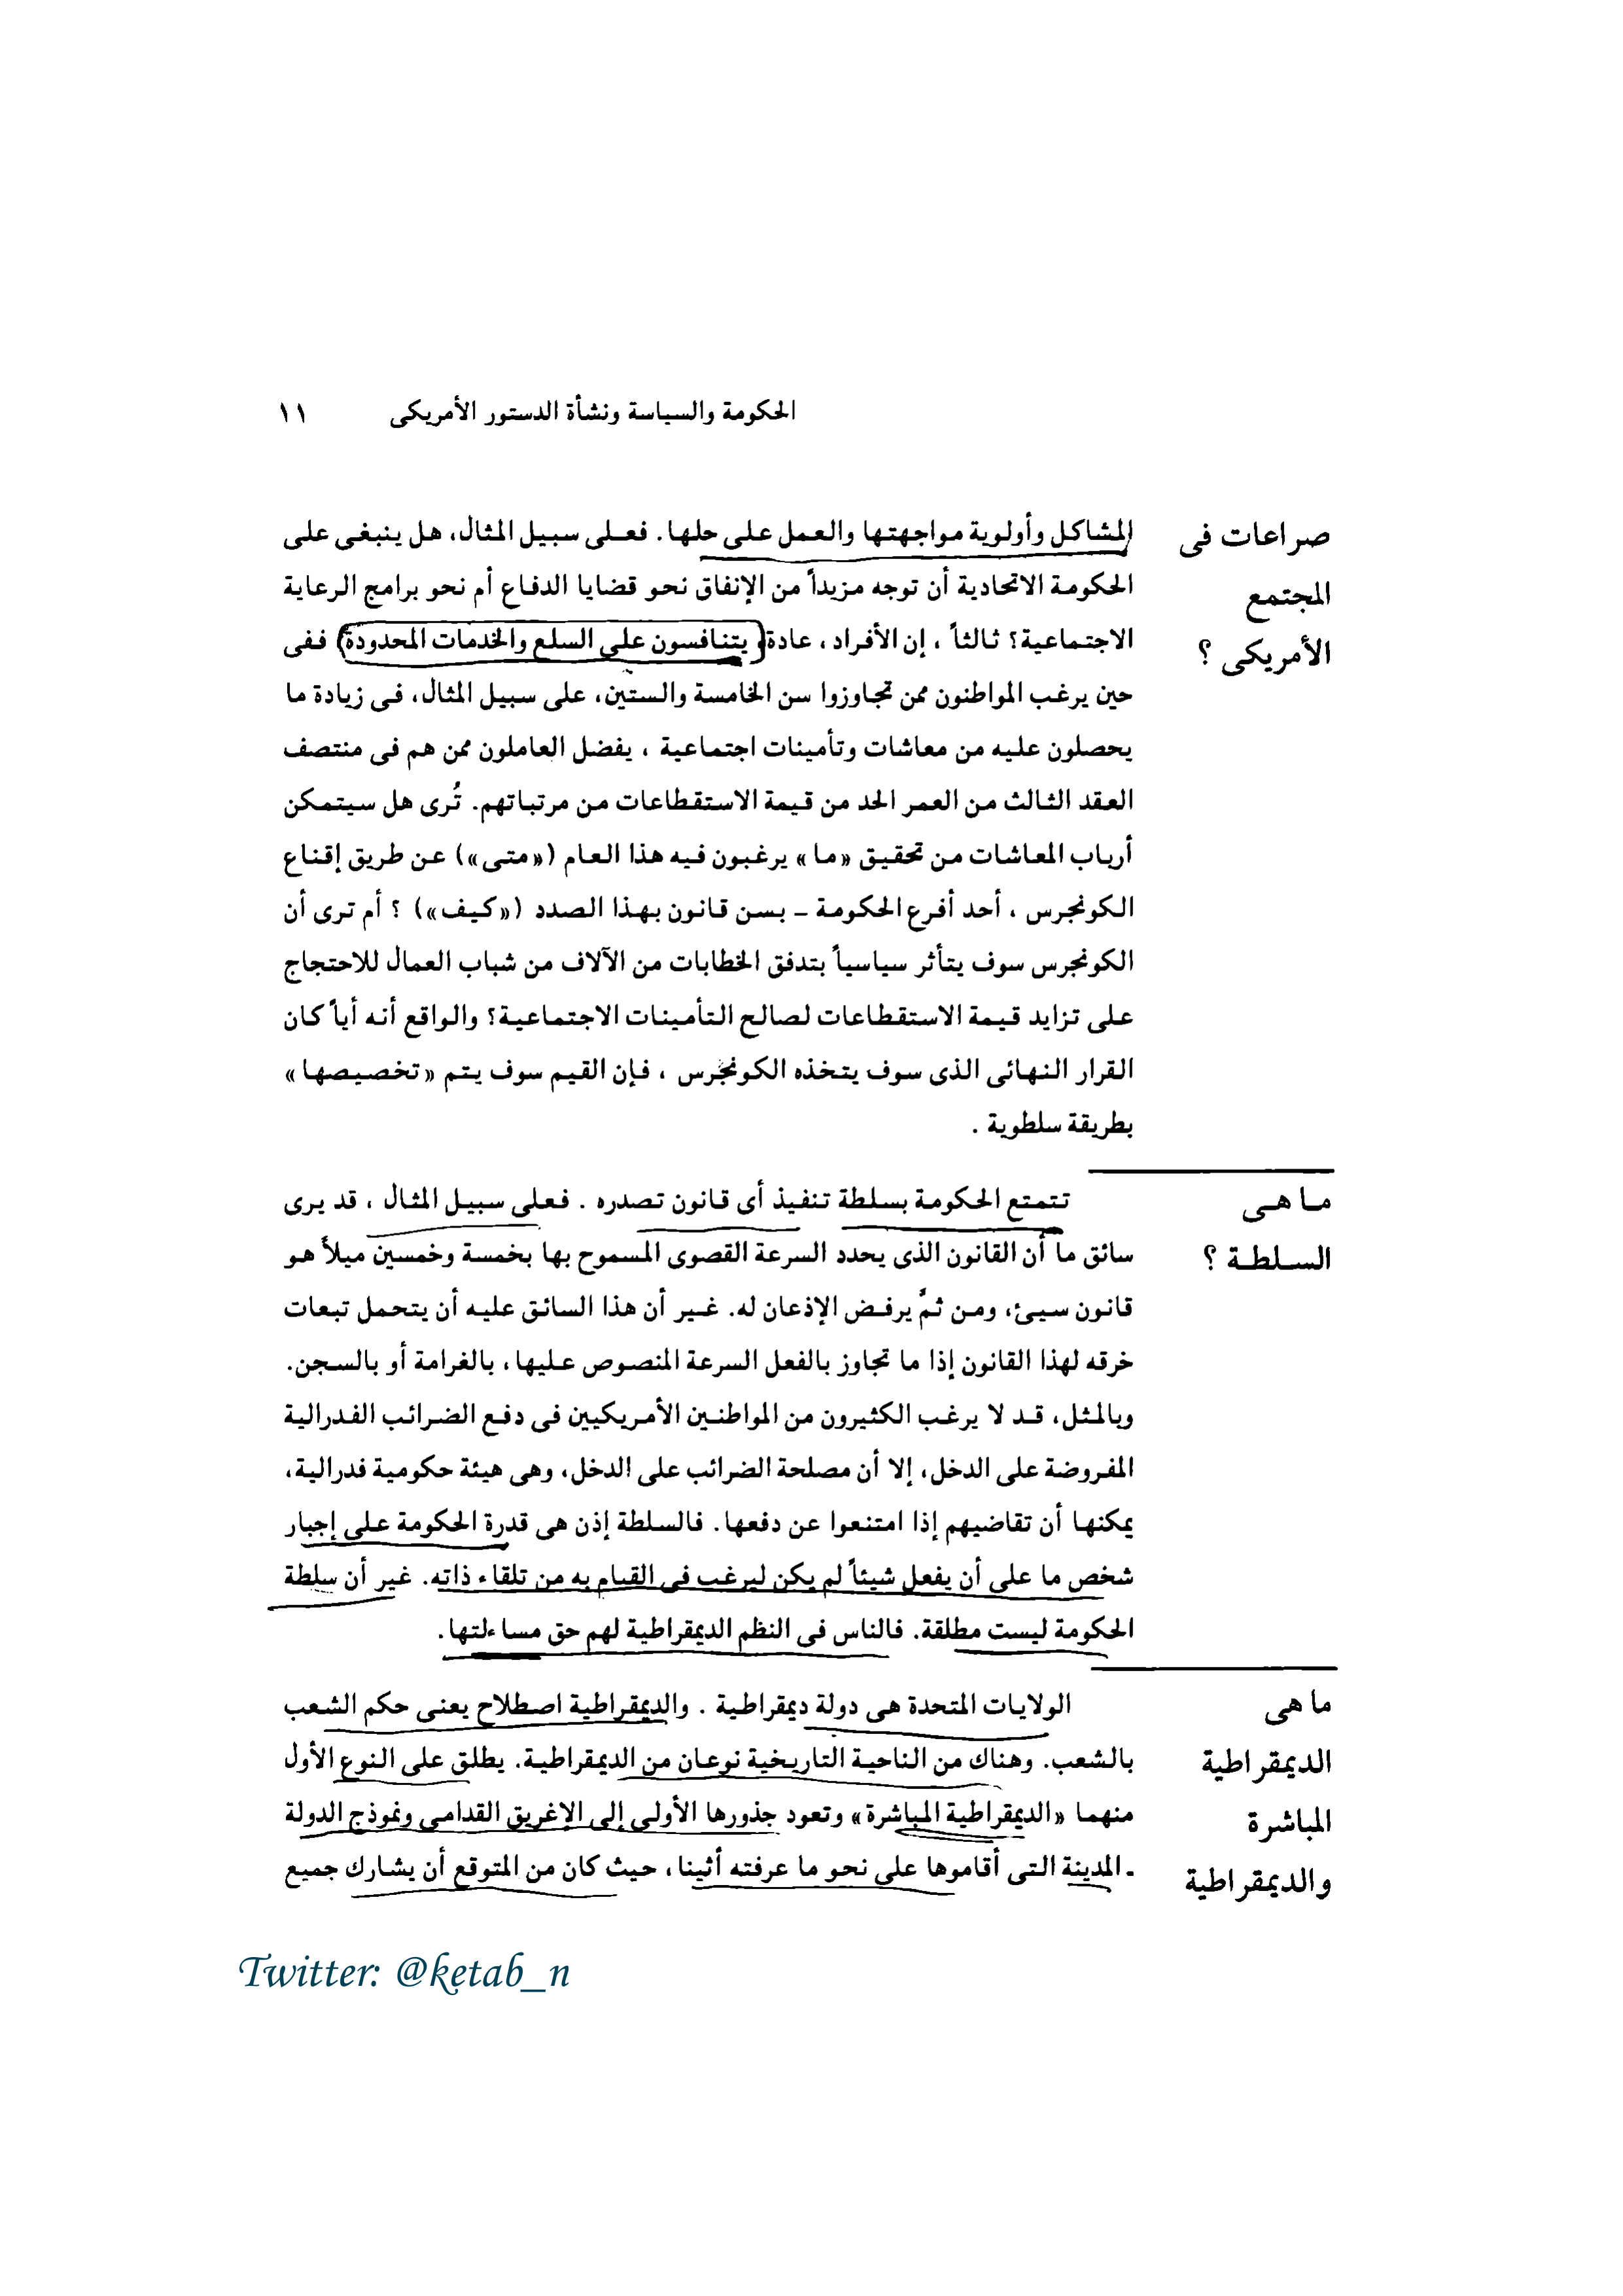 الحكومة والسياسة ونشأة الدستور الأمريكى ١١
صراعات فى
المجتمع
الأمريكى ؟
المشاكل وأولوية مواجهتها والعمل على حلها. فعلى سبيل المثال، هل ينبغى على
الحكومة الاتحادية أن توجه مزيداً من الإنفاق نحو قضايا الدفاع أم نحو برامج الرعاية
الاجتماعية؟ ثالثاً ، إن الأفراد ، عادة، يتنافسون على السلع والخدمات المحدودة) ففى
حين يرغب المواطنون ممن تجاوزوا سن الخامسة والستين، على سبيل المثال، فى زيادة ما
يحصلون عليه من معاشات وتأمينات اجتماعية ، يفضل العاملون ممن هم فى منتصف
العقد الثالث من العمر الحد من قيمة الاستقطاعات من مرتباتهم. تُرى هل سيتمكن
أرباب المعاشات من تحقيق «ما» يرغبون فيه هذا العام («متى») عن طريق إقناع
الكونجرس ، أحد أفرع الحكومة – بسن قانون بهذا الصدد («كيف») ؟ أم ترى أن
الكونجرس سوف يتأثر سياسياً بتدفق الخطابات من الآلاف من شباب العمال للاحتجاج
على تزايد قيمة الاستقطاعات لصالح التأمينات الاجتماعية؟ والواقع أنه أياً كان
القرار النهائى الذى سوف يتخذه الكونجرس ، فإن القيم سوف يتم «تخصيصها»
بطريقة سلطوية .
ما هى
السلطة ؟
تتمتع الحكومة بسلطة تنفيذ أى قانون تصدره . فعلى سبيل المثال ، قد يرى
سائق ما أن القانون الذى يحدد السرعة القصوى المسموح بها بخمسة وخمسين ميلاً هو
قانون سيئ، ومن ثمَّ يرفض الإذعان له. غير أن هذا السائق عليه أن يتحمل تبعات
خرقه لهذا القانون إذا ما تجاوز بالفعل السرعة المنصوص عليها، بالغرامة أو بالسجن.
وبالمثل، قد لا يرغب الكثيرون من المواطنين الأمريكيين فى دفع الضرائب الفدرالية
المفروضة على الدخل، إلا أن مصلحة الضرائب على الدخل، وهى هيئة حكومية فدرالية،
يمكنها أن تقاضيهم إذا امتنعوا عن دفعها. فالسلطة إذن هى قدرة الحكومة على إجبار
شخص ما على أن يفعل شيئاً لم يكن ليرغب فى القيام به من تلقاء ذاته. غير أن سلطة
الحكومة ليست مطلقة. فالناس فى النظم الديمقراطية لهم حق مساءلتها.
ما هى
الديمقراطية
المباشرة
والديمقراطية
الولايات المتحدة هى دولة ديمقراطية . والديمقراطية اصطلاح يعنى حكم الشعب
بالشعب. وهناك من الناحية التاريخية نوعان من الديمقراطية. يطلق على النوع الأول
منهما «الديمقراطية المباشرة» وتعود جذورها الأولى إلى الإغريق القدامى ونموذج الدولة
ـ المدينة التى أقاموها على نحو ما عرفته أثينا، حيث كان من المتوقع أن يشارك جميع
Twitter: @ketab_n